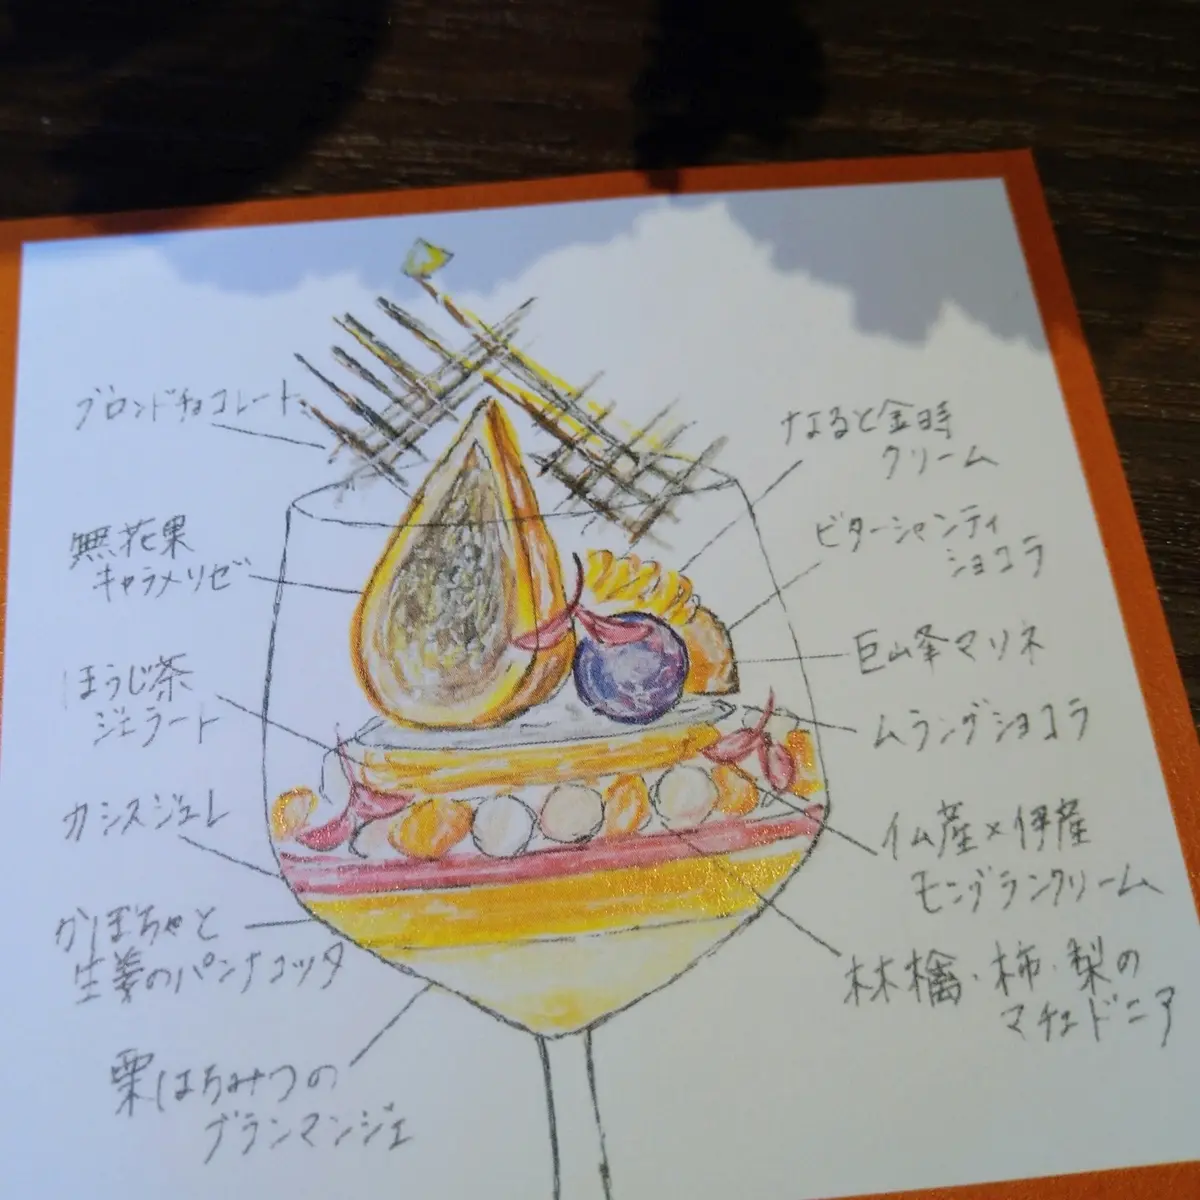 ブロンドチョコレート
無花果
キャラメリゼ
ほうじ茶
ジェラート
カシスジュレ
かぼちゃと
生姜のパンナコッタ
栗はちみつの
ブランマンジェ
なると金時
クリーム
ビターシャンティ
ショコラ
巨峰マリネ
ムラングショコラ
仏産×伊産
モンブランクリーム
林檎・柿・梨の
マチェドニア